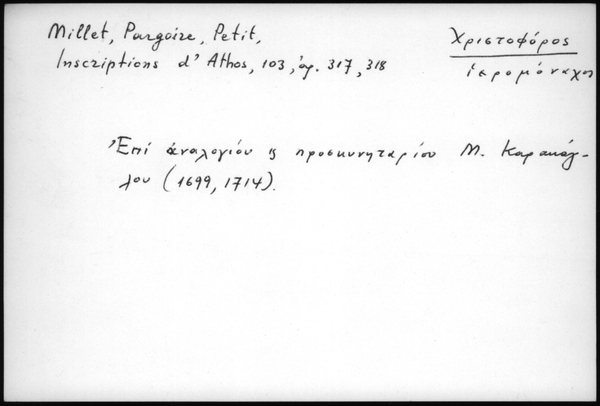 Millet, Pargoire, Petit,
Inscriptions d'Athos, 103, ἀρ. 317, 318
Χριστοφόρος
ἱερομόναχος
Ἐπί ἀναλογίου κ προσκυνηταρίου Μ. Καρακάλ-
λου (1699, 1714).